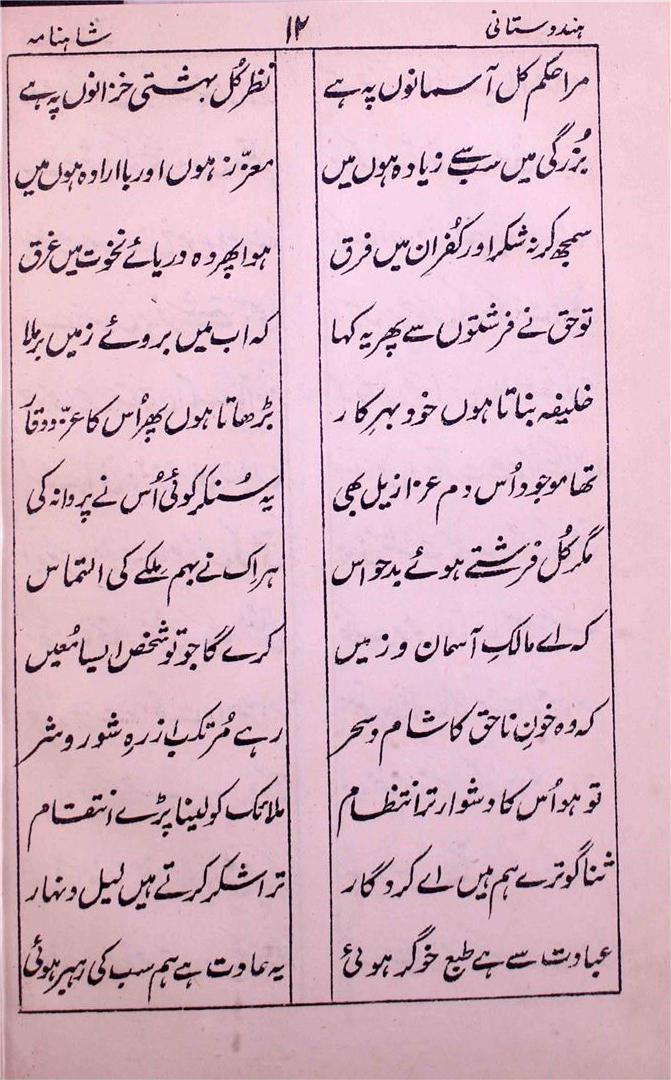 ہندوستانی ۱۲ شاہنامہ
مرا حکم کل آسمانوں پہ ہے نظر کُل بہشتی خزانوں پہ ہے
بُزرگی میں سب سے زیادہ ہوں میں معزّز ہوں اور باارادہ ہوں میں
سمجھ کر نہ شکر اور کُفران میں فرق ہوا پھر وہ دریائے نخوت میں غرق
تو حق نے فرشتوں سے پھر یہ کہا کہ اب میں بروئے زمیں برملا
خلیفہ بناتا ہوں خود بہرِ کار بڑھاتا ہوں پھر اُس کا عزّ و وقار
تھا موجود اُس دم عزازیل بھی یہ سُنکر کوئی اُس نے پروا نہ کی
مگر کُل فرشتے ہوئے بدحواس ہر اِک نے بہم ملکے کی التماس
کہ اے مالکِ آسمان و زمیں کرے گا جو تو شخص ایسا مُعیں
کہ وہ خونِ ناحق کا شام و سحر رہے مُرتکب از رہِ شور و شر
تو ہو اُس کا دشوار ترا انتظام ملائک کو لینا پڑے انتقام
ثنا گو ترے ہم ہیں اے کردگار ترا شکر کرتے ہیں لیل و نہار
عبادت سے ہے طبع خوگر ہوئی یہ عادت ہے ہم سب کی رہبر ہوئی